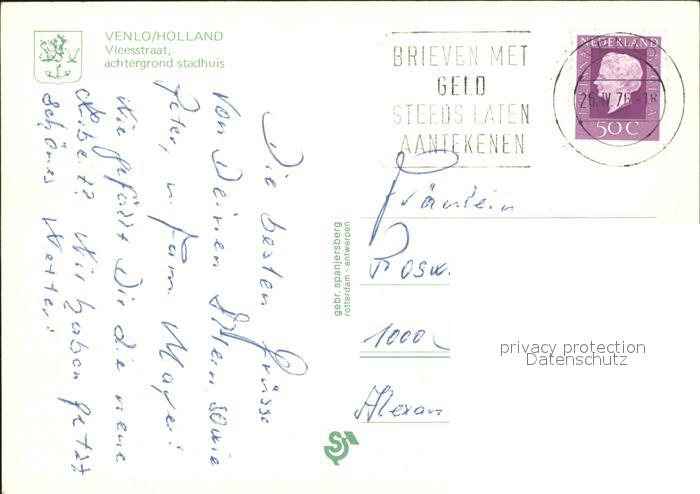 VENLO/HOLLAND
Vleesstraat,
achtergrond stadhuis
BRIEVEN MET
GELD
STEEDS LATEN
AANTEKENEN
NEDERLAND
JULIANA REGINA
26.IV.76-18
50 C
Die besten Grüsse
von Deinen Eltern, sowie
Peter, u. Fam. Mayer!
Wie gefällt Dir die neue
Arbeit? Wir haben jetzt
schönes Wetter!
gebr. spanjersberg
rotterdam - antwerpen
Fräulein
Rosw.
1000
Alexan
privacy protection
Datenschutz